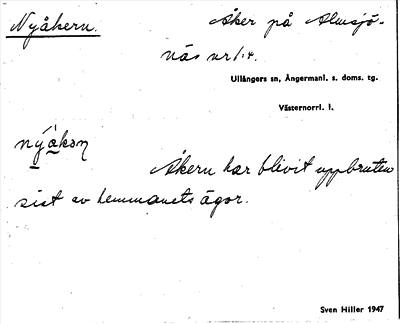 Nyåkern. Åker på Almsjö-
näs nr 1:4.
Ullångers sn, Ångermanl. s. doms. tg.
Västernorrl. l.
nỳákəɳ
Åkern har blivit uppbruten
sist av hemmanets ägor.
Sven Hiller 1947